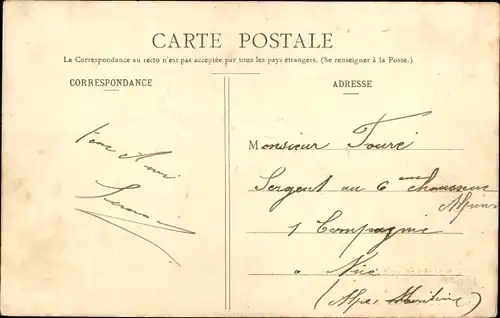 CARTE POSTALE
La Correspondance au recto n'est pas acceptée par tous les pays étrangers. (Se renseigner à la Poste.)
CORRESPONDANCE
ADRESSE
Ami
Monsieur Touré
Sergent au 6eme chasseurs
Alpins
1 Compagnie
à Nice
(Alpes Maritime)